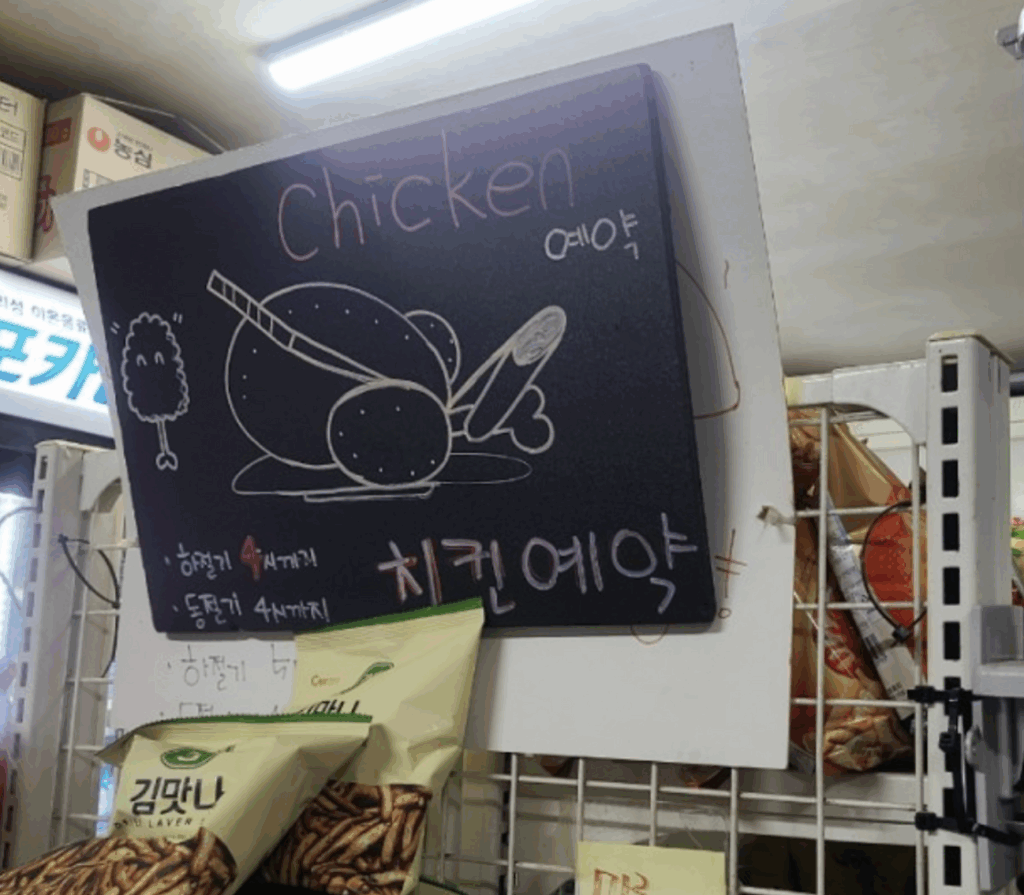 Chicken
예약
치킨예약
· 하절기 4시까지
· 동절기 4시까지
· 하절기
농심
포카
김맛나
LAVER